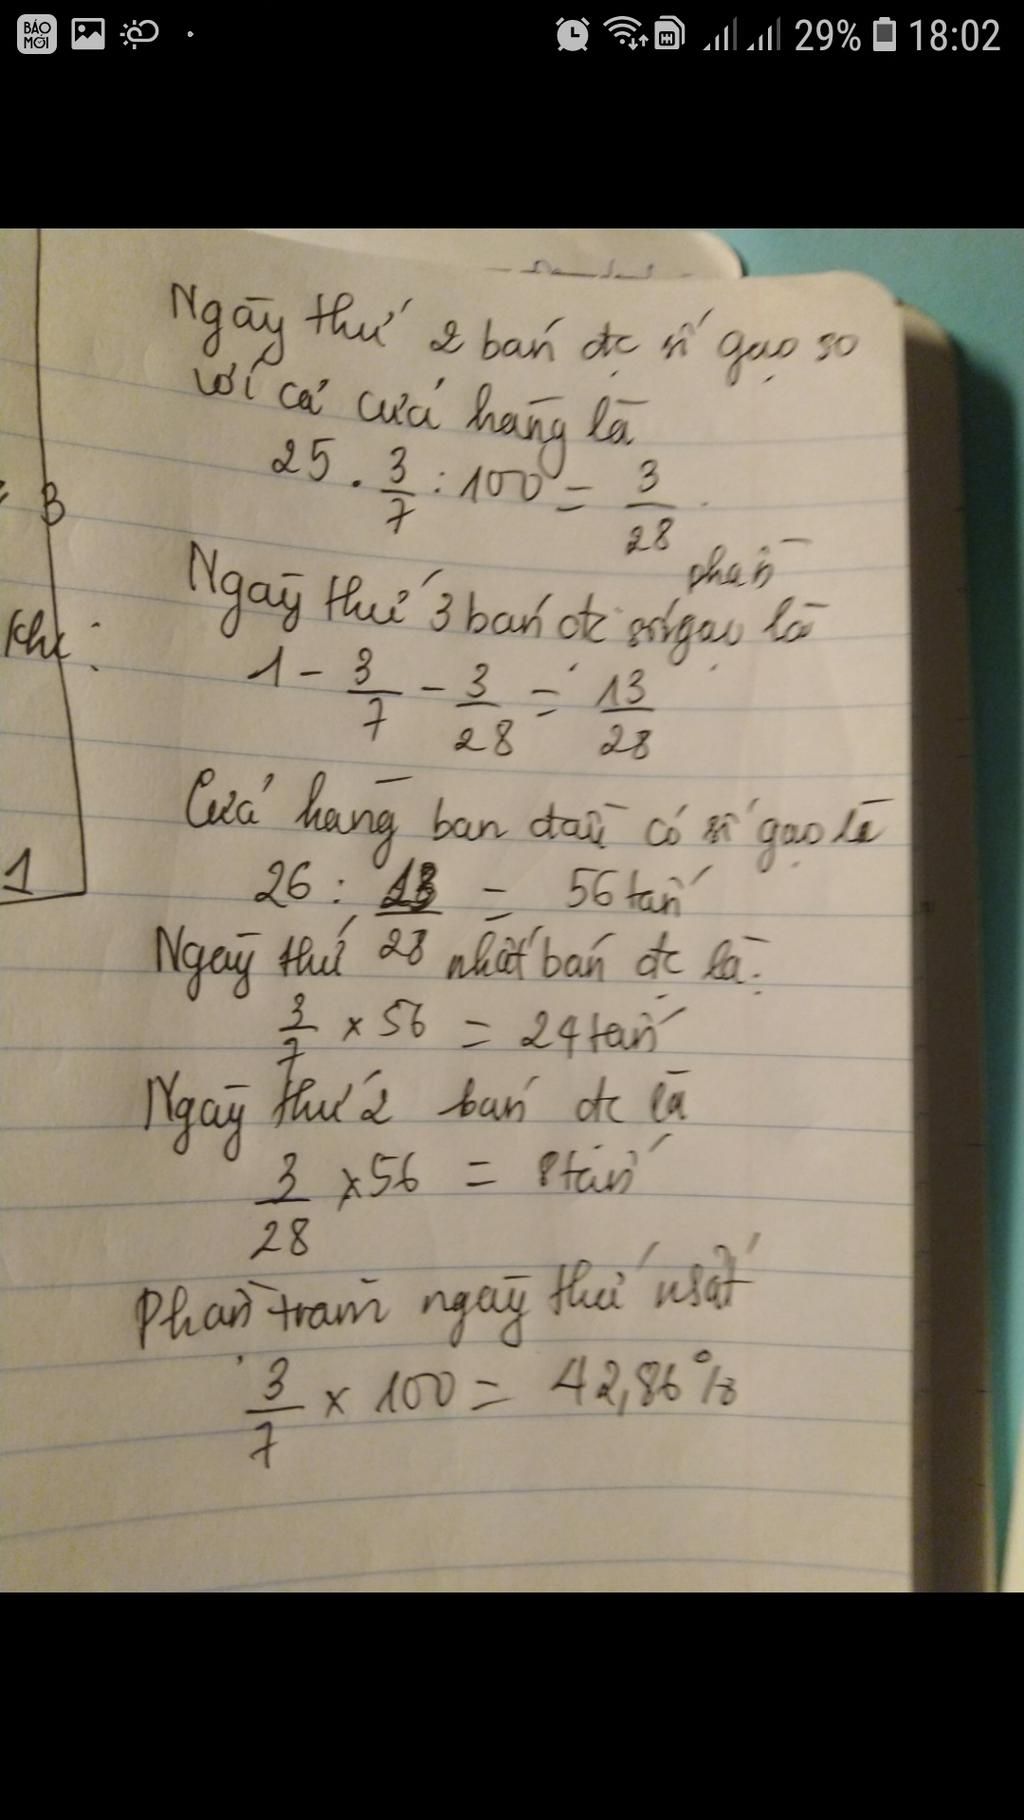 BÁO MỚI
29% 18:02
Ngày thứ 2 bán đc số gạo so
với cả cửa hàng là
25 . 3/7 : 100 = 3/28
phần
Ngày thứ 3 bán đc số gạo là
1 - 3/7 - 3/28 = 13/28
Cửa hàng ban đầu có số gạo là
26 : 13/28 = 56 tấn
Ngày thứ nhất bán đc là:
3/7 x 56 = 24 tấn
Ngày thứ 2 bán đc là
3/28 x 56 = 8 tấn
Phần trăm ngày thứ nhất
3/7 x 100 = 42,86%
= 3
Khi:
1